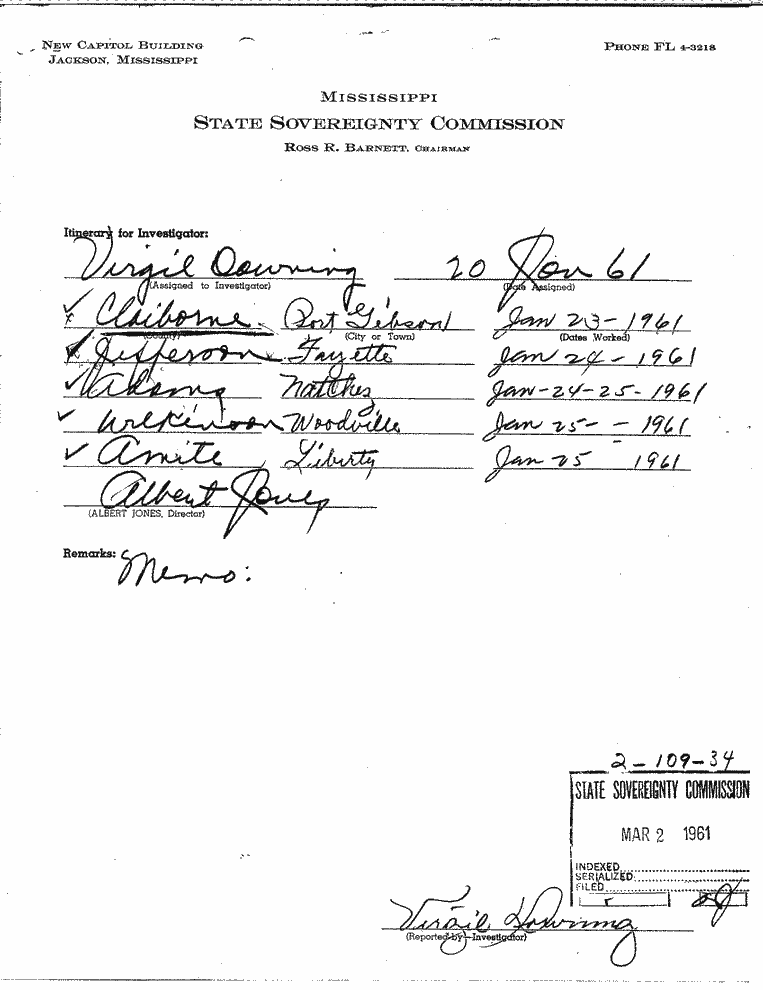 NEW CAPITOL BUILDING
JACKSON, MISSISSIPPI
PHONE FL 4-3218
MISSISSIPPI
STATE SOVEREIGNTY COMMISSION
ROSS R. BARNETT, CHAIRMAN
Itinerary for Investigator:
Virgil Downing 20 Jan 61
(Assigned to Investigator) (Date Assigned)
Claiborne Port Gibson Jan 23-1961
(County) (City or Town) (Dates Worked)
Jefferson Fayette Jan 24-1961
Adams Natchez Jan-24-25-1961
Wilkinson Woodville Jan 25- - 1961
Amite Liberty Jan 25 1961
Albert Jones
(ALBERT JONES, Director)
Remarks:
Memo:
2-109-34
STATE SOVEREIGNTY COMMISSION
MAR 2 1961
INDEXED
SERIALIZED
FILED
Virgil Downing
(Reported by-Investigator)